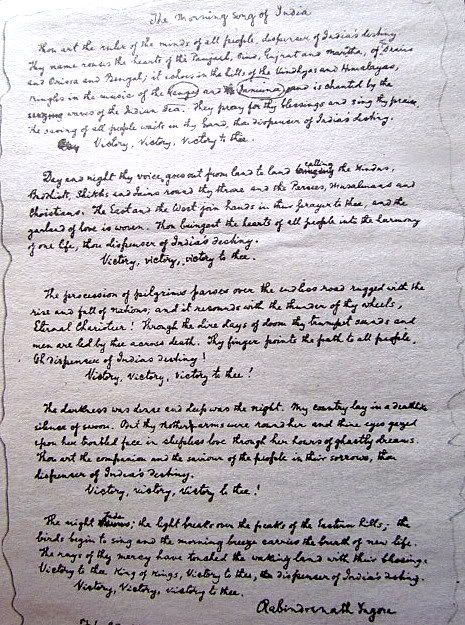 The Morning Song of India
Thou art the ruler of the minds of all people, dispenser of India's destiny
Thy name rouses the hearts of the Panjaub, Sind, Gujrat and Maratha, of Dravid
and Orissa and Bengal; it echoes in the hills of the Vindhyas and Himalayas,
mingles in the music of the Ganges and the Jamuna and is chanted by the
waves of the Indian Sea. They pray for thy blessings and sing thy praise,
the saving of all people waits in thy hand, thou dispenser of India's destiny.
Victory, Victory, Victory to thee.
Day and night thy voice goes out from land to land calling the Hindus,
Buddhists, Sikhs and Jains round thy throne and the Parsees, Musalmans and
Christians. The East and the West join hands in their prayer to thee, and the
garland of love is woven. Thou bringest the hearts of all people into the harmony
of one life, thou dispenser of India's destiny.
Victory, victory, victory to thee.
The procession of pilgrims passes over the endless road rugged with the
rise and fall of nations; and it resounds with the thunder of thy wheels,
Eternal Charioteer! Through the dire days of doom thy trumpet sounds and
men are led by thee across death. Thy finger points the path to all people,
Oh dispenser of India's destiny!
Victory, Victory, victory to thee!
The darkness was dense and deep was the night. My country lay in a deathlike
silence of swoon. But thy Mother arms were round her and thine eyes gazed
upon her troubled face in sleepless love through her hours of ghastly dreams.
Thou art the companion and the saviour of the people in their sorrows, thou
dispenser of India's destiny.
Victory, victory, victory to thee!
The night fades; the light breaks over the peaks of the Eastern hills; the
birds begin to sing and the morning breeze carries the breath of new life.
The rays of thy mercy have touched the waking land with their blessings.
Victory to the King of Kings, Victory to thee, the dispenser of India's destiny.
Victory, Victory, victory to thee.
Rabindranath Tagore